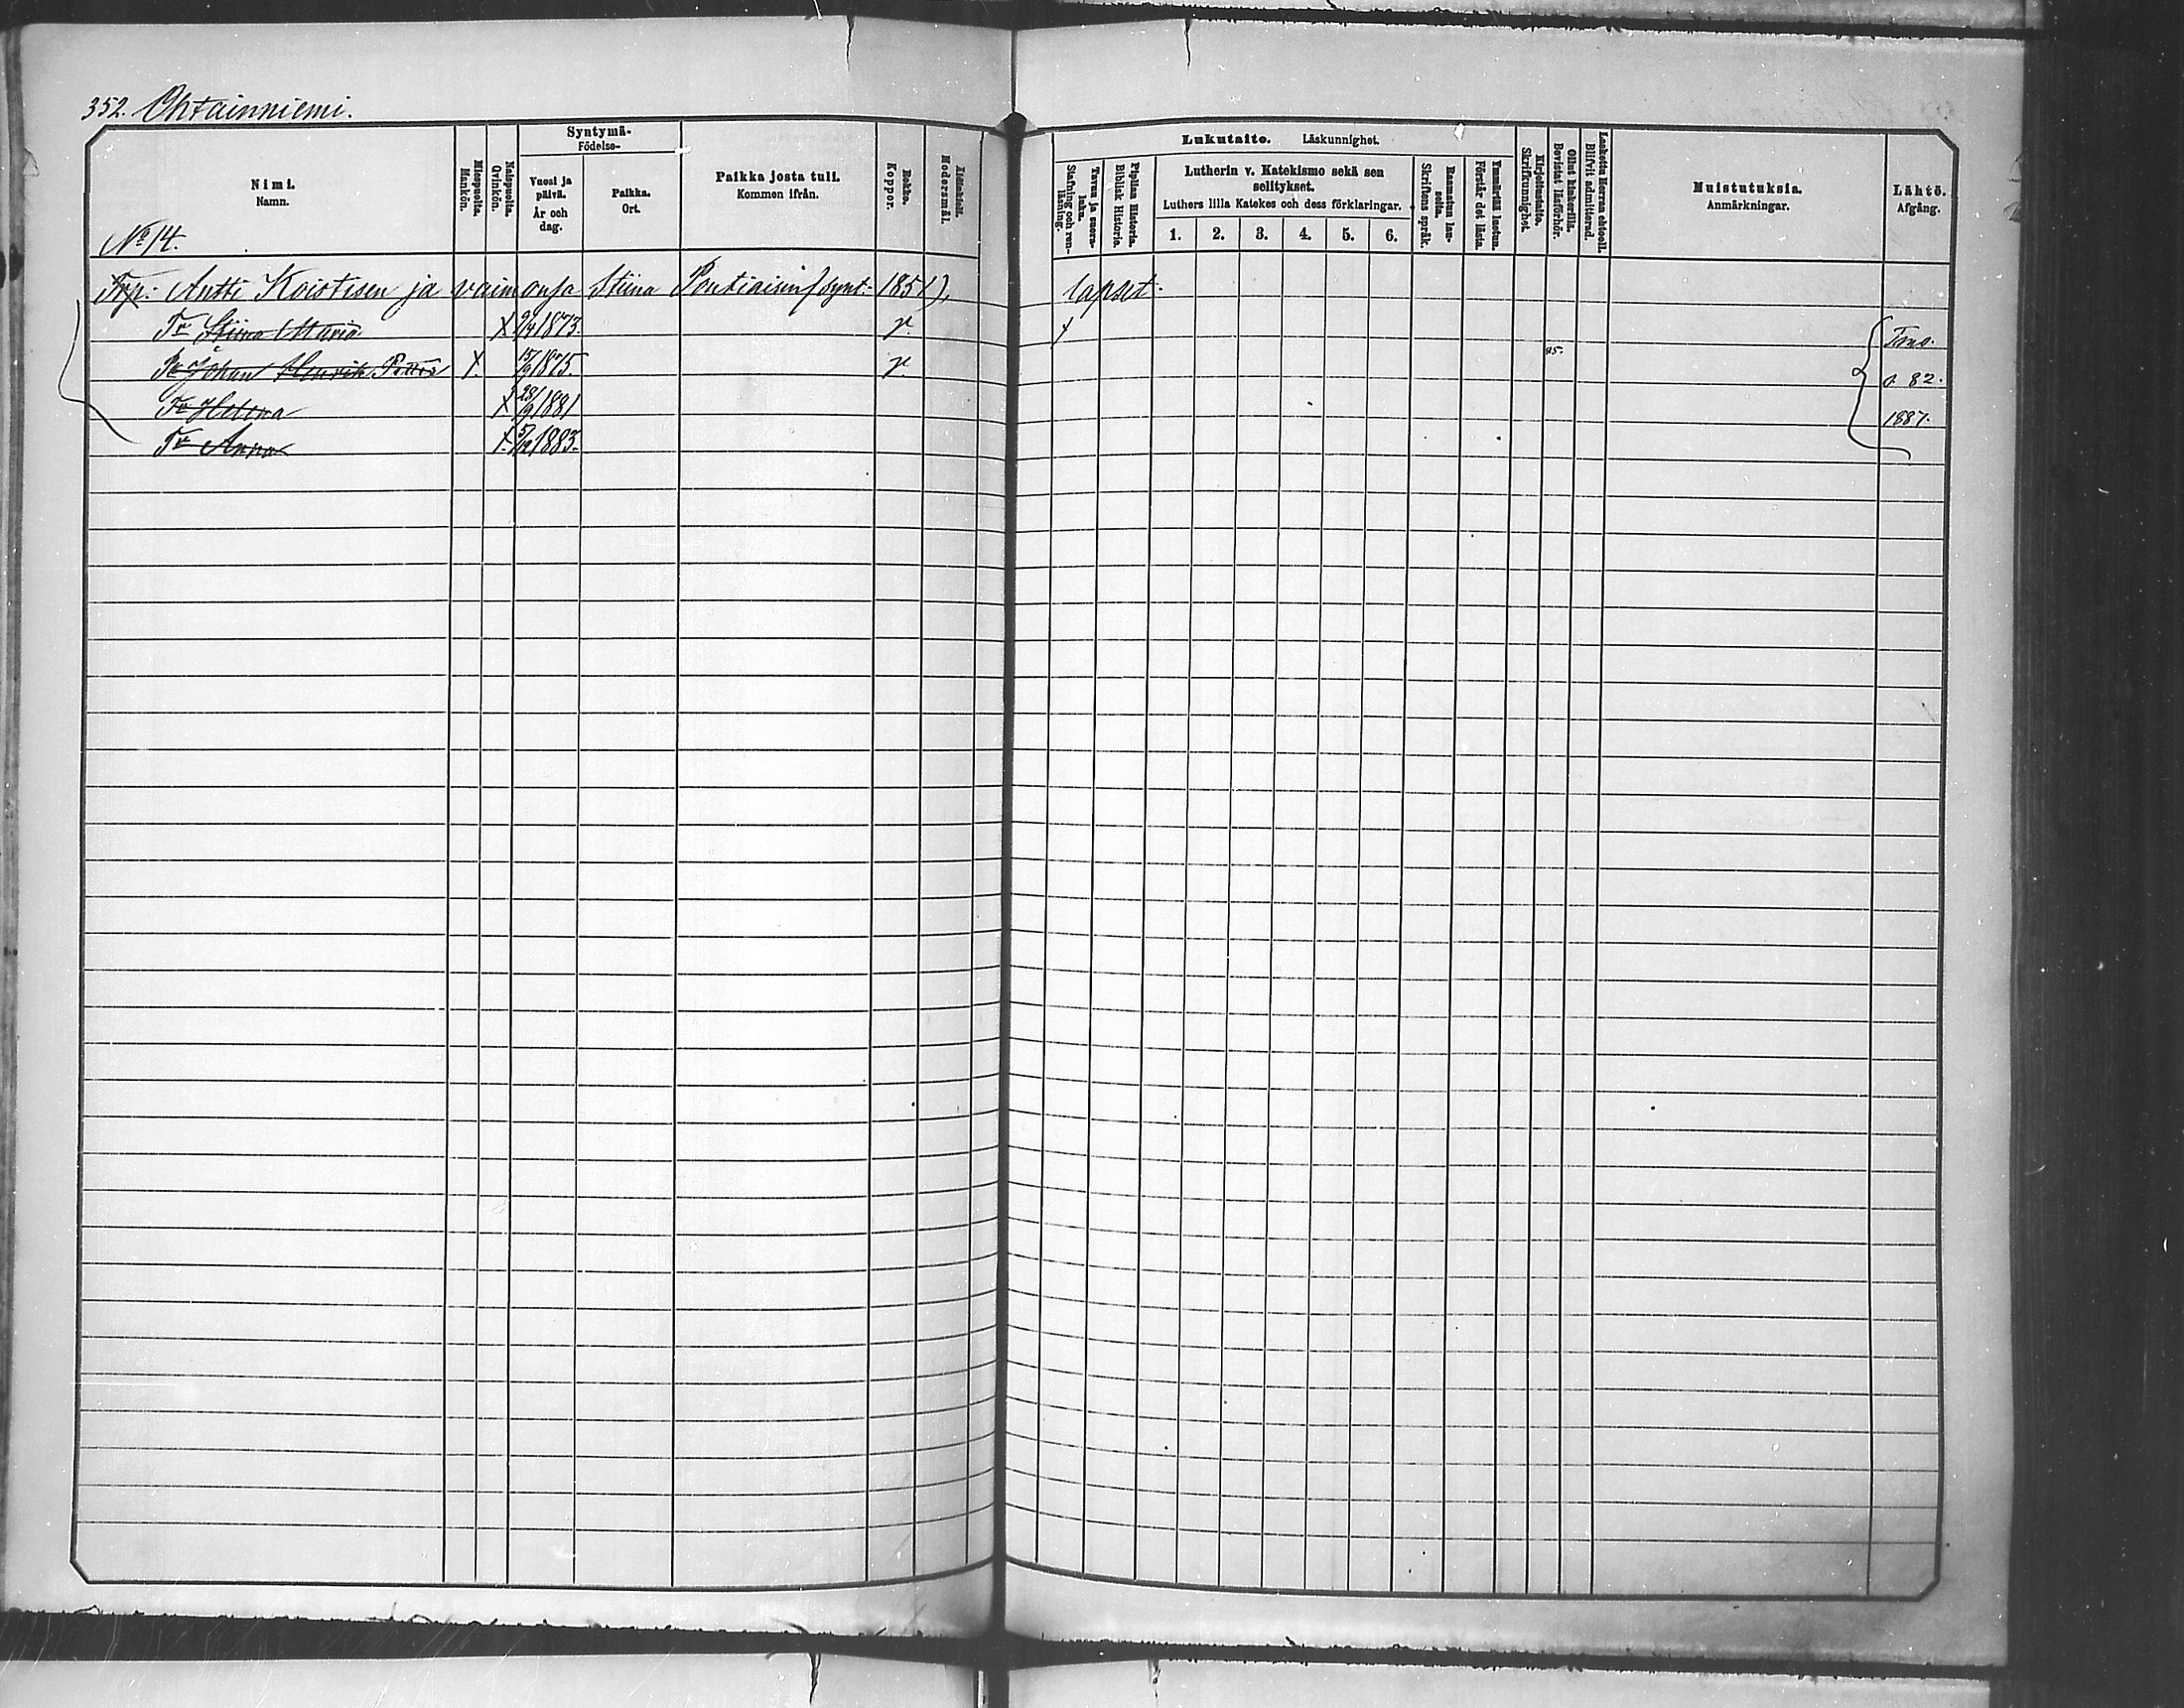 352. Ohtainniemi.
Syntymä-
Födelse-
Nimi.
Namn.
Miespuolia.
Mankön.
Naispuolia.
Qvinkön.
Vuosi ja päivä.
År och dag.
Paikka.
Ort.
Paikka josta tuli.
Kommen ifrån.
Rokko.
Koppor.
Äidinkieli.
Modersmål.
Lukutaito. Läskunnighet.
Tavuu ja suora-luku.
Stafning och ren-läsning.
Piplian Historia.
Biblisk Historia.
Lutherin v. Katekismo sekä sen selitykset.
Luthers lilla Katekes och dess förklaringar.
1. 2. 3. 4. 5. 6.
Raamatun lau-seita.
Skriftens språk.
Ymmärtää luetun.
Förstår det lästa.
Kirjoitustaito.
Skrifkunnighet.
Ollut kinkerillä.
Bevistat läsförhör.
Laskettu Herran ehtooll.
Blifvit admitterad.
Muistutuksia.
Anmärkningar.
Lähtö.
Afgång.
No 14.
Antti Koistisen ja vaimonsa Stiina Pontiaisin (synt. 1851), lapset.
Tr Stiina Maria X 2/4 1873. r. x Tms.
Johan Henrik Petter X. 15/9 1875. r. 85. s. 82.
Tr Helena X 28/9 1881 1887.
Tr Anna X. 5/12 1883.